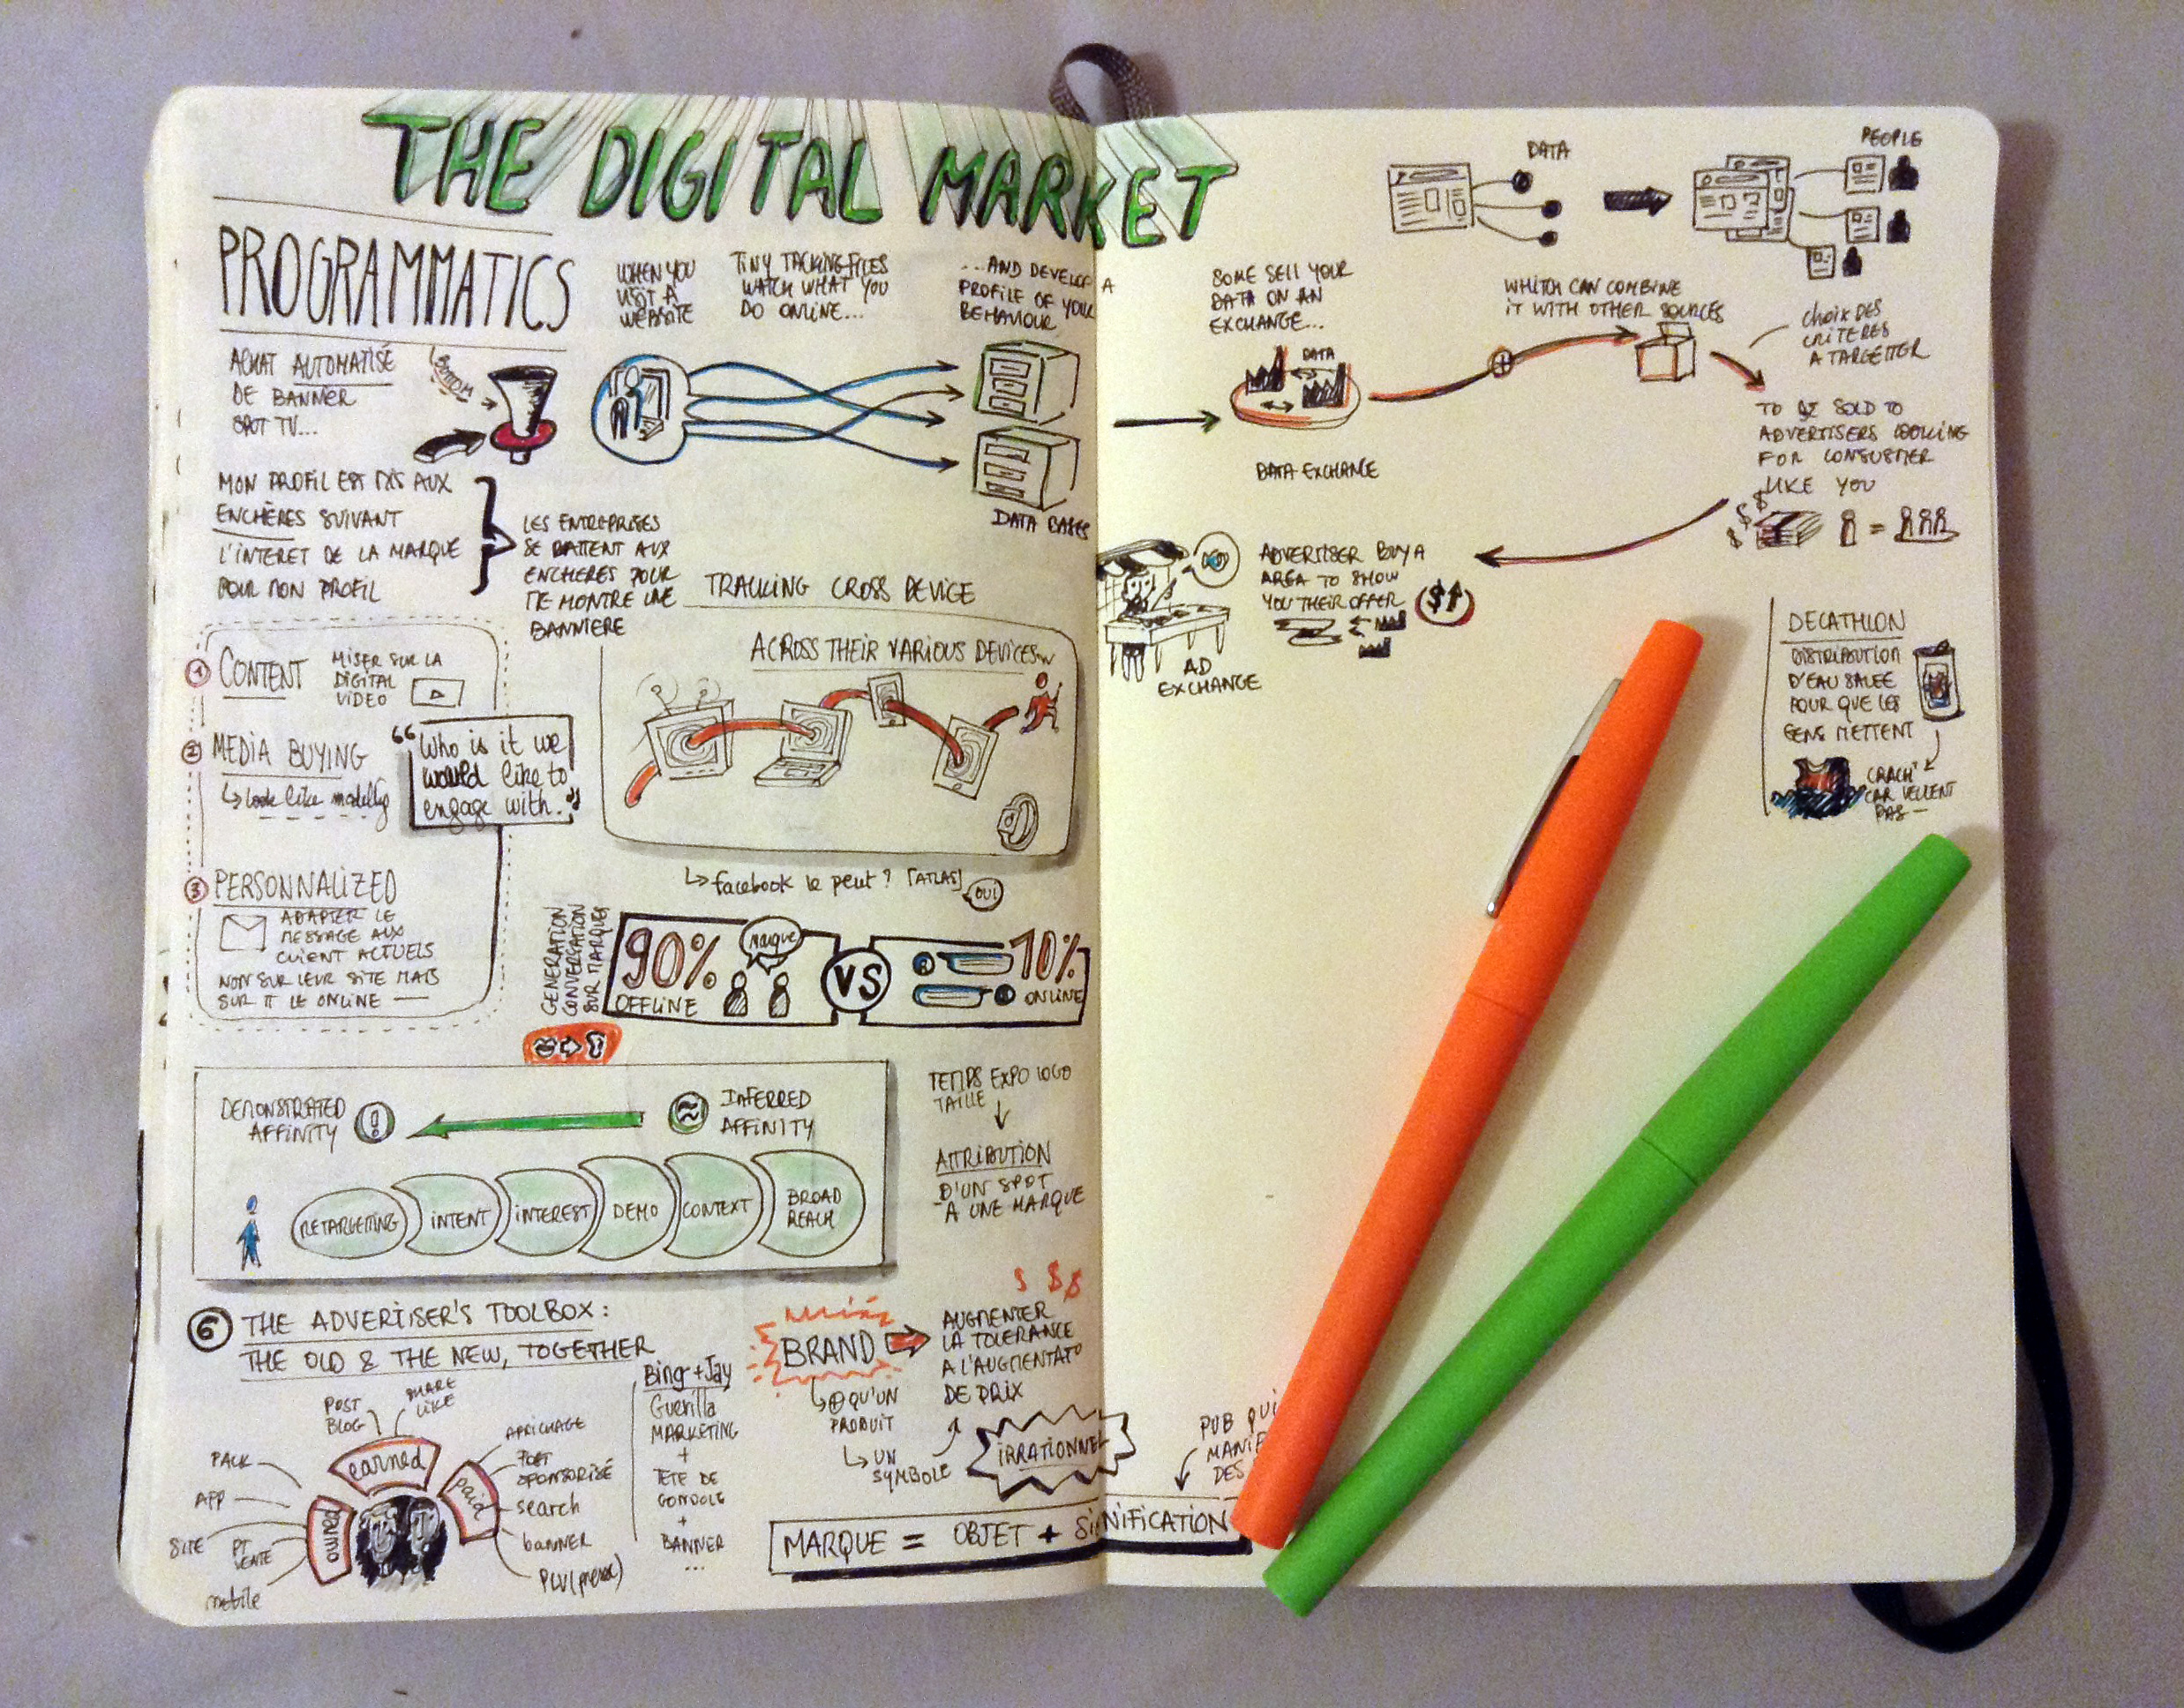 THE DIGITAL MARKET
PROGRAMMATICS
ACHAT AUTOMATISÉ
DE BANNER
SPOT TV...
BOTTOM
MON PROFIL EST MIS AUX
ENCHÈRES SUIVANT
L'INTERET DE LA MARQUE
POUR MON PROFIL
LES ENTREPRISES
SE BATTENT AUX
ENCHERES POUR
ME MONTRE UNE
BANNIERE
WHEN YOU
VISIT A
WEBSITE
TINY TACKING FILES
WATCH WHAT YOU
DO ONLINE...
...AND DEVELOP A
PROFILE OF YOUR
BEHAVIOUR
DATA BASES
SOME SELL YOUR
DATA ON AN
EXCHANGE...
DATA
DATA EXCHANGE
DATA
PEOPLE
WHITCH CAN COMBINE
IT WITH OTHER SOURCES
CHOIX DES
CRITERES
A TARGETTER
TO BE SOLD TO
ADVERTISERS LOOKING
FOR CONSUMER
LIKE YOU
$ $ $
=
ADVERTISER BUY A
AREA TO SHOW
YOU THEIR OFFER
$
AD
EXCHANGE
DECATHLON
DISTRIBUTION
D'EAU SALEE
POUR QUE LES
GENS METTENT
CRACHÉ
CAR VEULENT
PAS
1 CONTENT
MISER SUR LA
DIGITAL
VIDEO
2 MEDIA BUYING
look like modelling
“Who is it we
would like to
engage with.”
3 PERSONNALIZED
ADAPTER LE
MESSAGE AUX
CLIENT ACTUELS
NON SUR LEUR SITE MAIS
SUR TT LE ONLINE
TRACKING CROSS DEVICE
ACROSS THEIR VARIOUS DEVICES
facebook le peut ? [ATLAS]
OUI
GENERATION
CONVERSATION
SUR MARQUES
90%
OFFLINE
Marque
VS
10%
ONLINE
DEMONSTRATED
AFFINITY
INFERRED
AFFINITY
RETARGETING
INTENT
INTEREST
DEMO
CONTEXT
BROAD
REACH
TEMPS EXPO LOGO
TAILLE
ATTRIBUTION
D'UN SPOT
A UNE MARQUE
6 THE ADVERTISER'S TOOLBOX:
THE OLD & THE NEW, TOGETHER
POST
BLOG
SHARE
LIKE
earned
PACK
APP
SITE
PT
VENTE
mobile
owned
paid
AFFICHAGE
POST
SPONSORISÉ
search
banner
PLV
Bing + Jay
Guerilla
MARKETING
+
TETE DE
GONDOLE
+
BANNER
...
BRAND
+ QU'UN
PRODUIT
UN
SYMBOLE
$ $$
AUGMENTER
LA TOLERANCE
A L'AUGMENTAT°
DE PRIX
IRRATIONNEL
PUB QUI
DES
MARQUE = OBJET + SIGNIFICATION